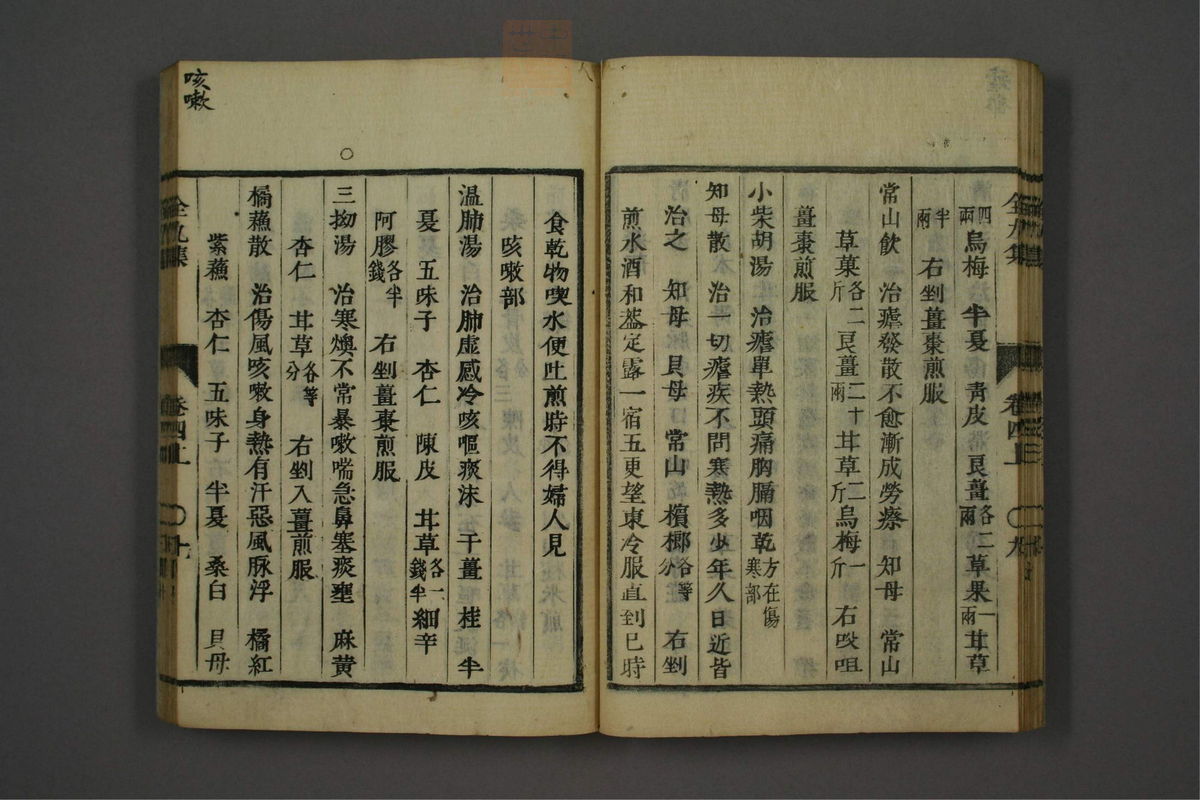 四兩烏梅 半夏 靑皮 良薑各二兩草果一兩甘草
半兩 右剉薑棗煎服
常山飲 治瘧發散不愈漸成勞瘵 知母 常山
草菓各二斤良薑二十兩甘草二斤烏梅一斤 右㕮咀
薑棗煎服
小柴胡湯 治瘧單熱頭痛胸膈咽乾方在傷寒部
知母散 治一切瘧疾不問寒熱多少年久日近皆
治之 知母 貝母 常山 檳榔各等分 右剉
煎水酒和蓋定露一宿五更望東冷服直到巳時
全九集 卷四上 九
食乾物喫水便吐煎時不得婦人見
咳嗽部
温肺湯 治肺虛感冷咳嘔痰沫 干薑 桂 半
夏 五味子 杏仁 陳皮 甘草各一錢半細辛
阿膠各半錢 右剉薑棗煎服
三拗湯 治寒燠不常暴嗽喘急鼻塞痰壅 麻黃
杏仁 甘草各等分 右剉入薑煎服
橘蘓散 治傷風咳嗽身熱有汗惡風脉浮 橘紅
紫蘓 杏仁 五味子 半夏 桑白 貝母
全九集 卷四上 十
咳嗽